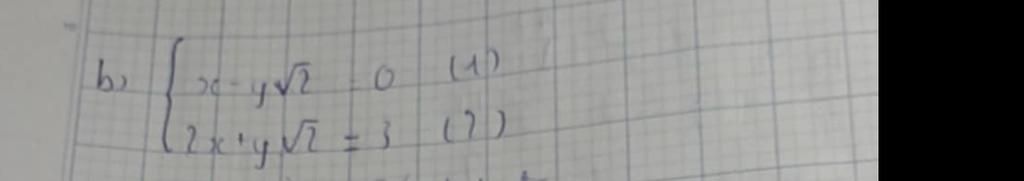 b) { x - y√2 = 0 (1)
2x + y√2 = 3 (2)